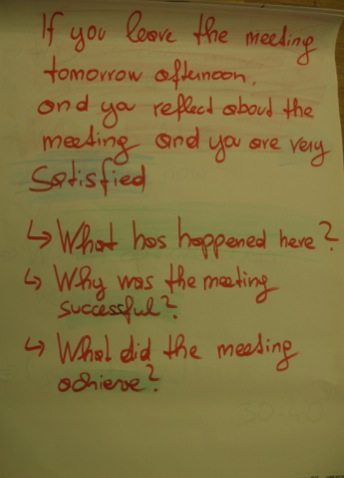 If you leave the meeting
tomorrow afternoon,
and you reflect about the
meeting and you are very
Satisfied
↳ What has happened here?
↳ Why was the meeting
successful?
↳ What did the meeting
achieve?